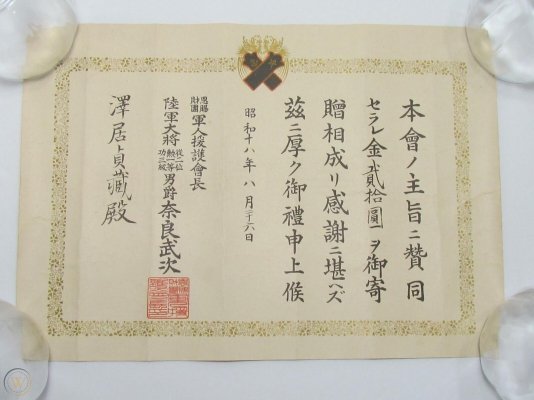 本會ノ主旨ニ贊同
セラレ金貳拾圓ヲ御寄
贈相成リ感謝ニ堪ヘズ
茲ニ厚ク御禮申上候
昭和十八年八月二十六日
恩賜財團軍人援護會長
陸軍大將從二位勲一等功三級男爵奈良武次
澤居貞藏殿